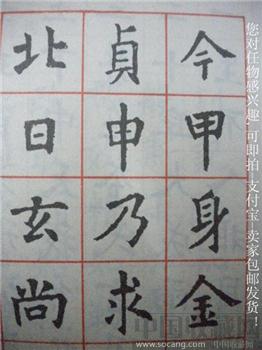 今甲身金
貞申乃求
北日玄尚
您对任物感兴趣,可即拍,支付宝,卖家包邮发货!
中国收藏网
www.socang.com 中国收藏网